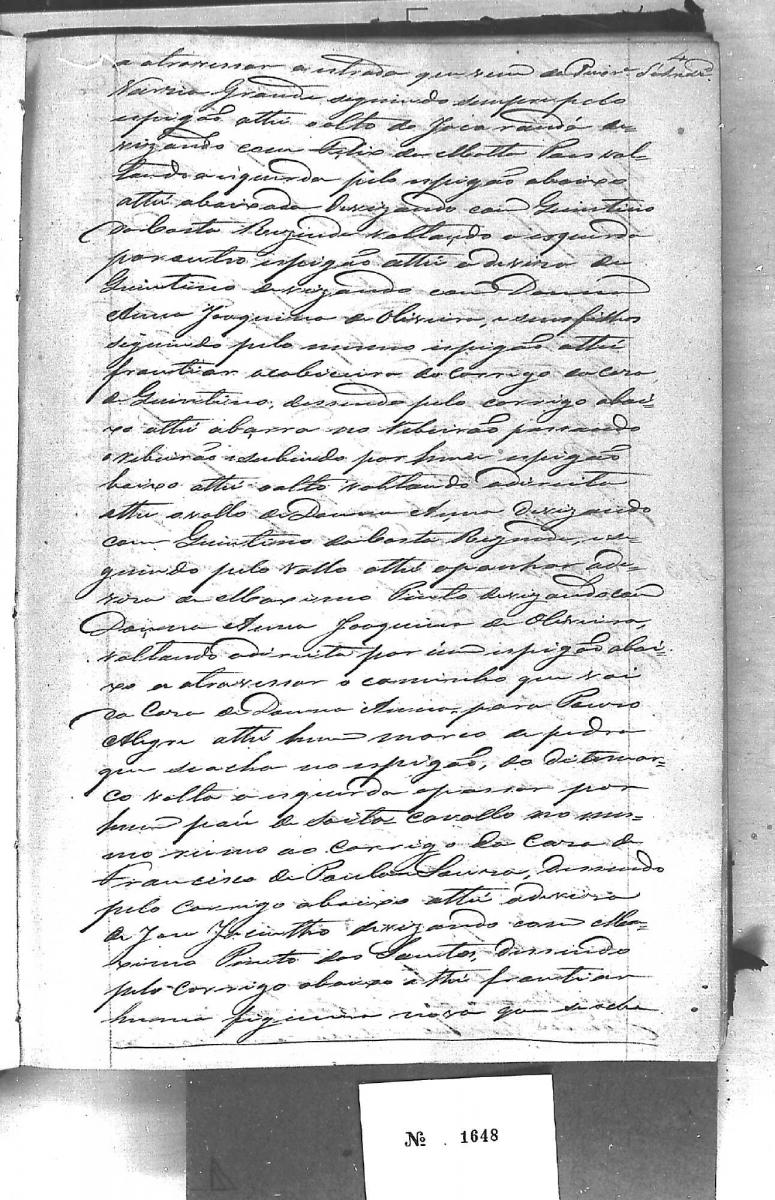 a atravessar a estrada que vem da
4
Varzia Grande seguindo sempre pelo
espigão athé o alto do Jacarandá de-
vizando com Felix da Motta Paes vol-
tando a esquerda pelo espigão abaixo
athé abaixada devizando com Quintino
da Costa Rezende voltando a esquerda
por outro espigão athé a deviza de
Quintino devizando com Donna
Anna Joaquina de Oliveira, e seus filhos
seguindo pelo mesmo espigão athé
frontiar a cabiceira do corrigo da caza
de Quintino, dessendo pelo corrigo abai-
xo athé abarra no Ribeirão passando
o ribeirão e subindo por hum espigão
baixo athé o alto voltando a direita
athé o vallo de Donna Anna devizando
com Quintino da Costa Rezende, se-
guindo pelo vallo athé apanhar a de-
viza de Maximo Pinto devizando com
Donna Anna Joaquina de Oliveira,
voltando a direita por um espigão abai-
xo a atravessar o caminho que vai
da Caza de Donna Anna, para Pouzo
Alegre athé hum marco de pedra
que se acha no espigão, do dito mar-
co volta a esquerda a passar por
hum páu de soita cavallo no mes-
mo rumo ao corrigo da Caza de
Francisco de Paula dessendo
pelo corrigo abaixo athé a deviza
de Joze Jacintho devizando com Ma-
ximo Pinto dos Santos, dessendo
pelo corrigo abaixo athé frontiar
huma figueira nova que se acha
Nº 1648